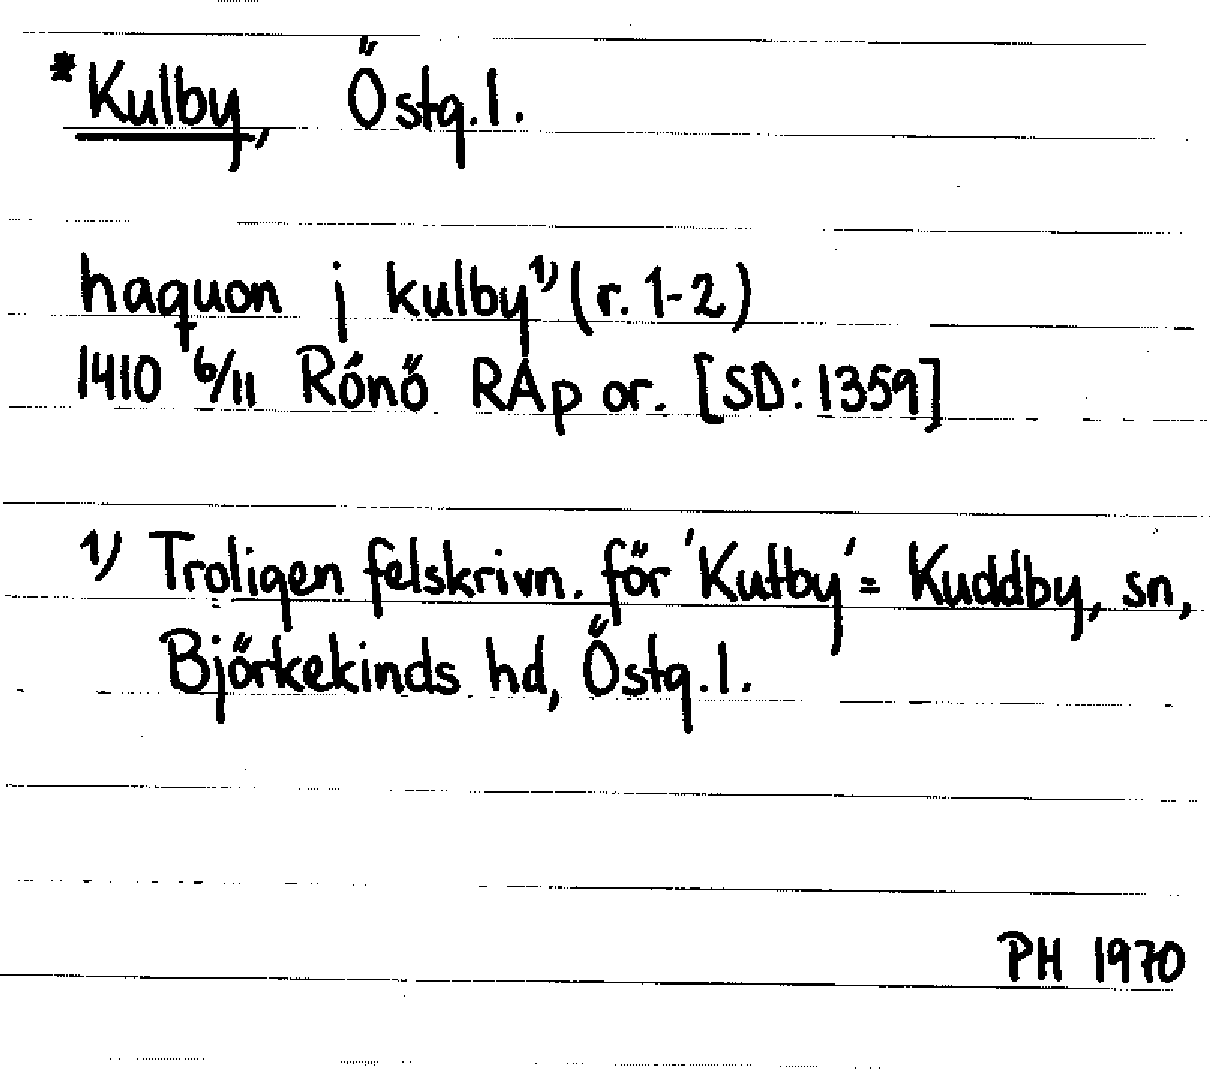 *Kulby, Östg.l.
haquon j kulby¹⁾ (r. 1-2)
1410 6/11 Rönö RAp or. [SD: 1359]
¹⁾ Troligen felskrivn. för 'Kutby' = Kuddby, sn,
Björkekinds hd, Östg.l.
PH 1970